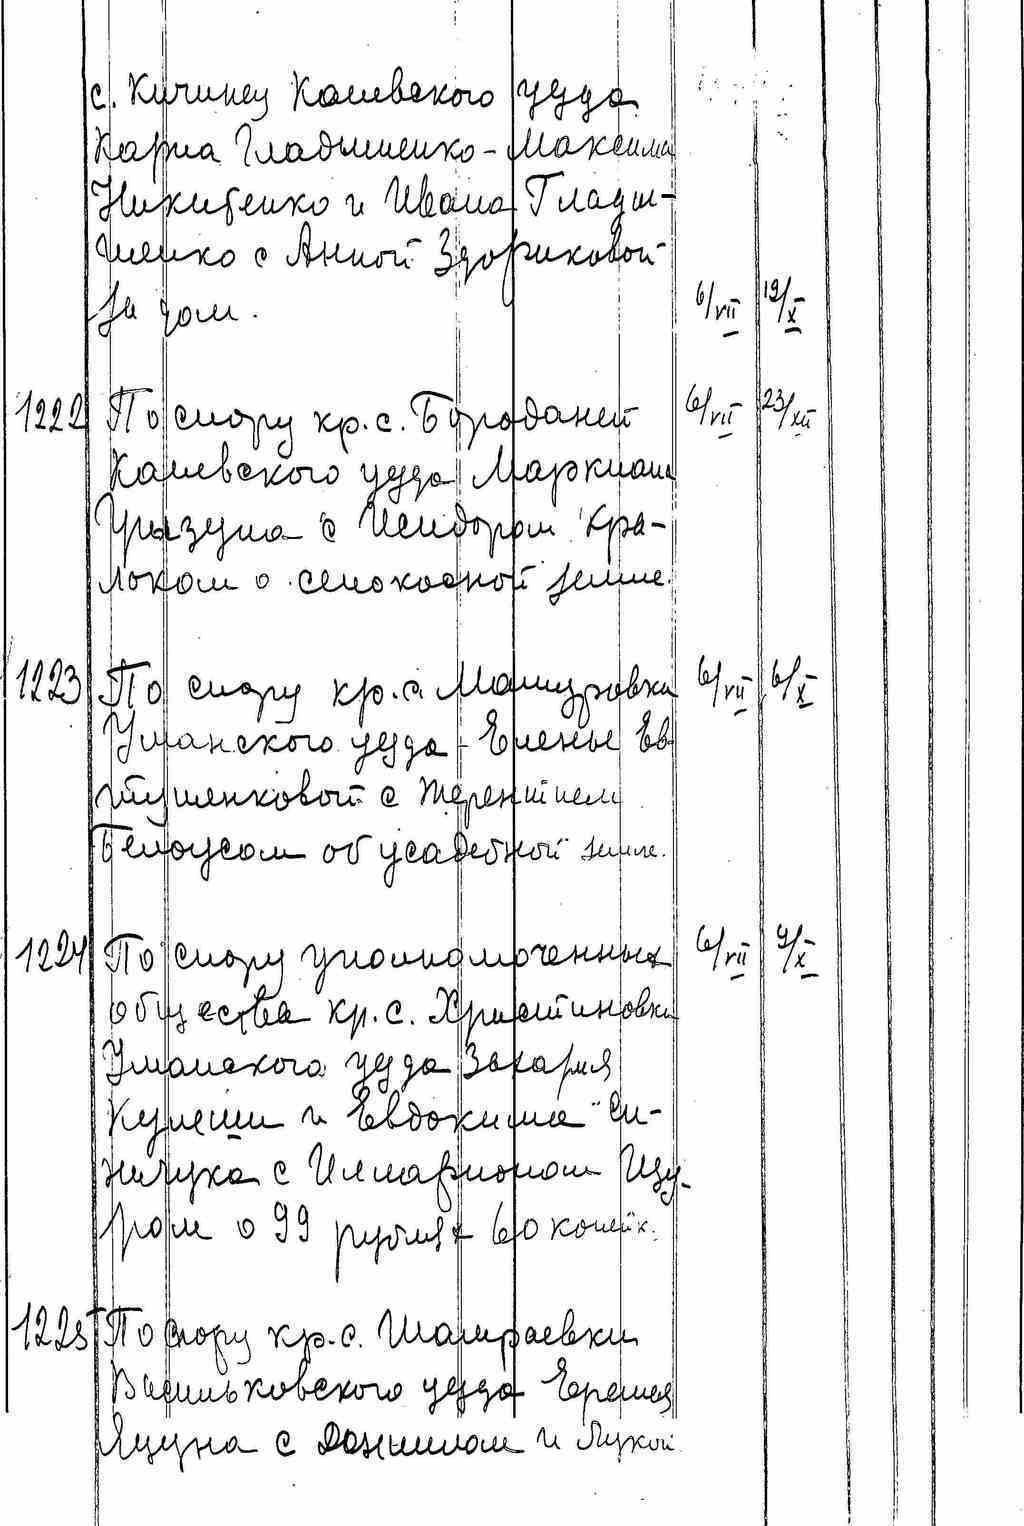 с. Кичинец Каневского уезда
Карпа Гладышенко - Максима
Никитенко и Ивана Глады-
шенко с Анной Здориковой
за дом. 6/VII 19/X
1222 По спору кр. с. Бороданей 6/VII 23/XII
Каневского уезда Маркиана
с Исидором Кра-
локом о сенокосной земле.
1223 По спору кр. с. Машуровки 6/VII 6/X
Уманского уезда - Елены Ев-
тушенковой с Терентием
Белоусом об усадебной земле.
1224 По спору уполномоченных 6/VII 9/X
общества кр. с. Христиновки
Уманского уезда Захария
Кулеши и Евдокима Си-
ничука с Илларионом Цзу-
ром о 99 рублях 60 копейк.
1225 По спору кр. с. Шамраевки
Васильковского уезда Еремея
Яцуна с Данилом и Лукой